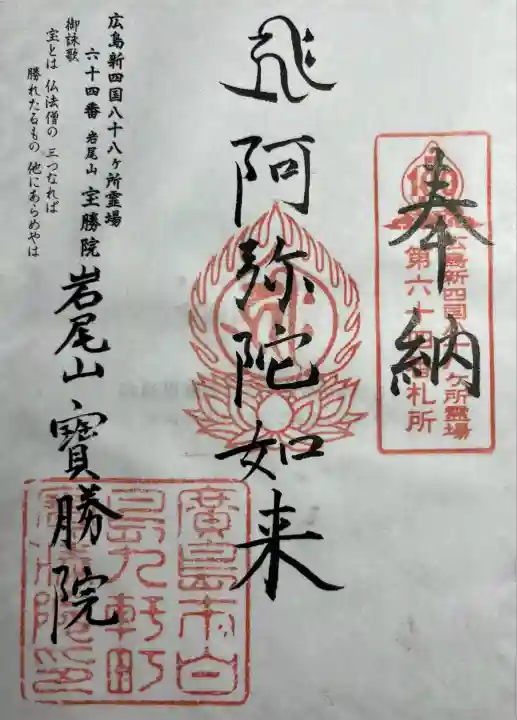 奉納
広島新四国八十八ヶ所霊場
第六十四番札所
阿弥陀如来
岩尾山 寶勝院
広島新四国八十八ヶ所霊場
六十四番 岩尾山 宝勝院
御詠歌
宝とは 仏法僧の 三つなれば
勝れたるもの 他にあらめやは
廣島市白
島九軒町
寶勝院印